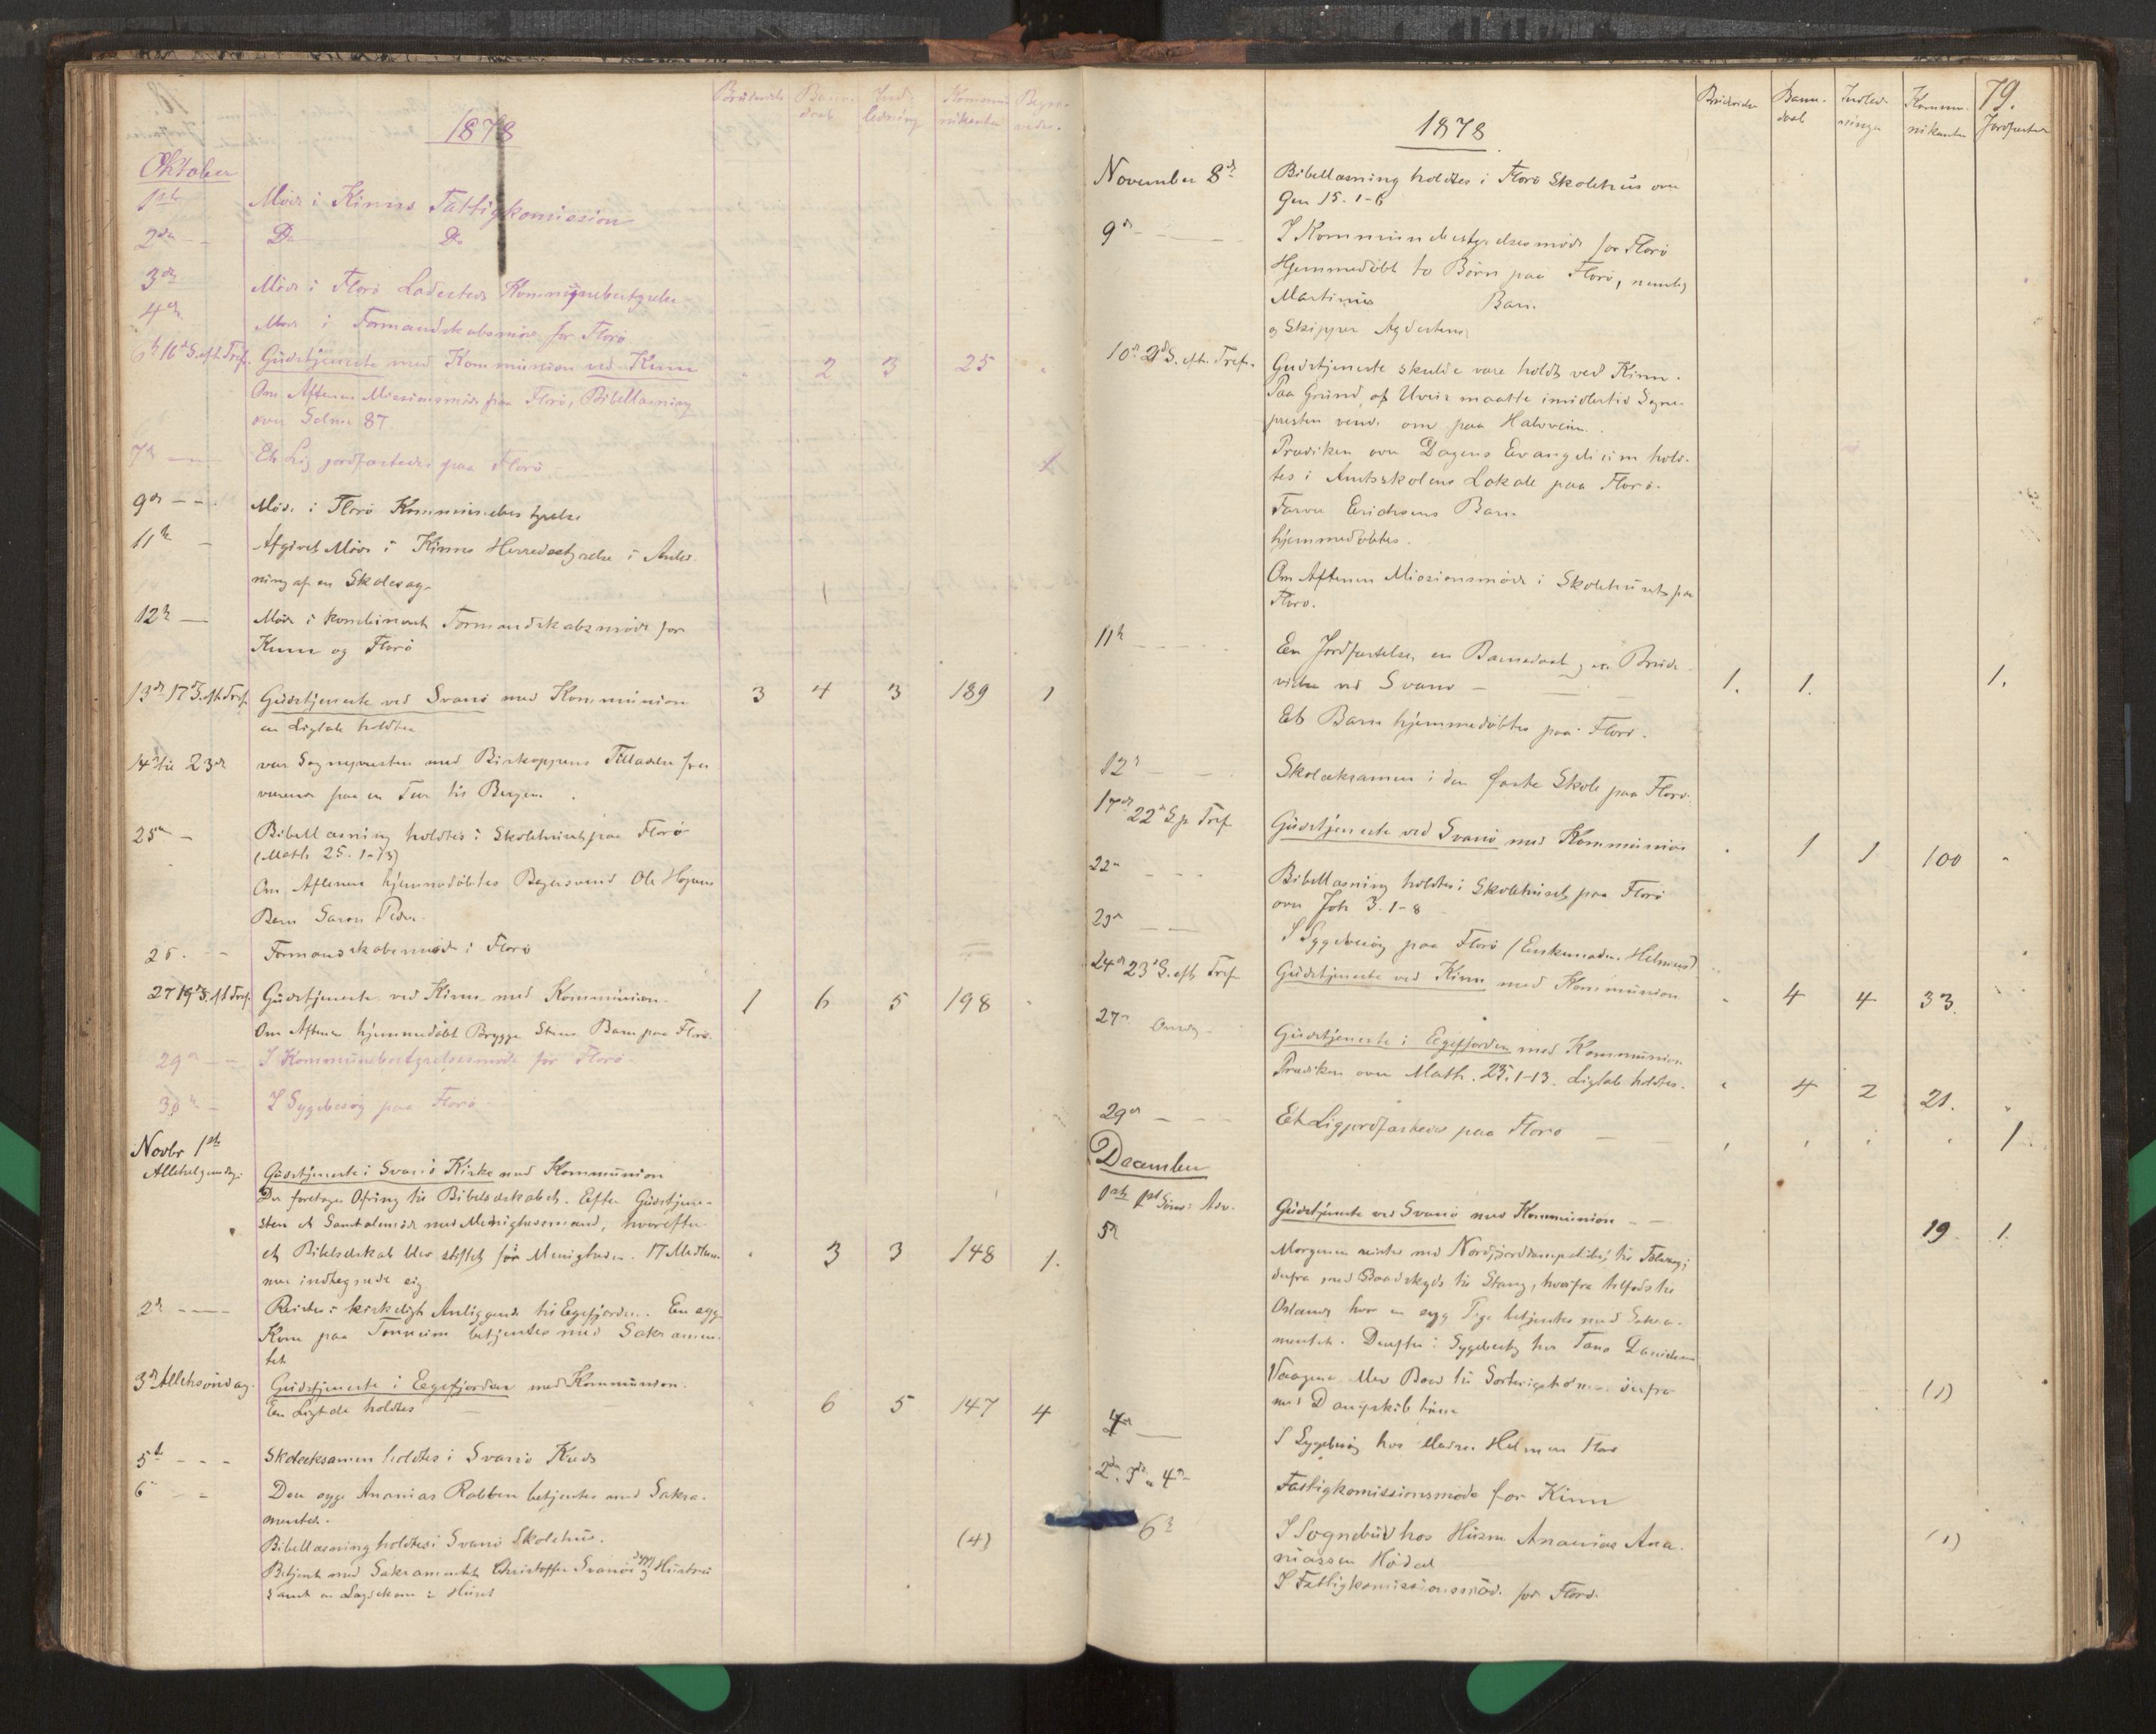 1878
Brudevielse Barnedaab Indledning Kommunikanter Begravelser
Oktober
1ste Möde i Kinns Fattigkomission
2den D. D.
3de Möde i Florö Ladesteds Kommunebestyrelse
4de Möde i Formandskabsmöde for Florö
6te 16de S. eft. Tref. Gudstjeneste med Kommunion ved Kinn " 2 3 25 "
Om Aftenen Missionsmöde paa Florö, Bibellæsning
over Salme 87.
7de Et Lig jordfæstedes paa Florö 1
9de Möde i Florö Kommunebestyrelse
11te Afgivet Möde i Kinns Herredsstyrelse i Anled-
ning af en Skolesag.
12te Möde i kombineret Formandskabsmöde for
Kinn og Florö
13de 17de S. eft. Tref. Gudstjeneste ved Svanö med Kommunion 3 4 3 189 1
en Ligtale holdtes
14de til 23de var Sognepresten med Biskoppens Tilladelse fra-
værende paa en Tur til Bergen.
25de Bibellæsning holdtes i Skolehuset paa Florö
(Math 25. 1-13)
Om Aftenen hjemmedöbtes Ole
Barn
26. Formandskabsmöde i Florö
27 19de S. eft Tref. Gudstjeneste ved Kinn med Kommunion 1 6 5 198 "
Om Aftenen hjemmedöbt Brygge Barn paa Florö.
29de I Kommunebestyrelsesmöde for Florö
30te I Sygebesög paa Florö
Novbr 1ste
Allehelgensdag. Gudstjeneste i Svanö Kirke med Kommunion
Der foretages Ofring til Bibelselskabet. Efter Gudstjene-
sten et Samtalemöde med Menighedsmænd, hvorefter
et Bibelselskab blev stiftet for Menigheden. 17 Medlem- " 3 3 148 1.
mer indtegnede sig.
2de Reiste i kirkeligt Anliggende til Eegefjorden. En syg
Kone paa betjentes med Sakramen-
tet
3de Allehsöndag. Gudstjeneste i Eegefjorden med Kommunion.
En Ligtale holdtes " 6 5 147 4
5te Skoleeksamen holdtes i Svanö Kreds
6te Den syge Ananias Rabben betjentes med Sakra-
mentet.
Bibellæsning holdtes i Svanö Skolehus. (4)
Betjent med Sakramentet Christoffer Svanöe og Hustru
samt en i Huset
79.
1878
Brudevielse Barnedaab Indledninger Kommunikanter Jordfæstelser
November 8de Bibellæsning holdtes i Florö Skolehus over
Gen 15. 1-6
9de I Kommunebestyrelsesmöde for Florö
Hjemmedöbt to Börn paa Florö, nemlig
Martinus Barn
og Skipper
10de 21de S. eft. Tref. Gudstjeneste skulde være holdt ved Kinn.
Paa Grund af Uveir maatte imidlertid Sogne-
presten vende om paa
Prædiken over Dagens Evangelium hold-
tes i Amtsskolens Lokale paa Florö.
Farver Erichsens Barn
hjemmedöbtes.
Om Aftenen Missionsmöde i Skolehuset paa
Florö.
11te En Jordfæstelse, en Barnedaab og en Brude-
vielse ved Svanö 1. 1. 1.
Et Barn hjemmedöbtes paa Florö.
12te Skoleeksamen i den faste Skole paa Florö.
17de 22de S. p. Tref Gudstjeneste ved Svanö med Kommunion " 1 1 100 "
22de Bibellæsning holdtes i Skolehuset paa Florö
over Joh 3. 1-8
23de I Sygebesög paa Florö (Enkemadm. Helmers)
24de 23de S. eft Tref Gudstjeneste ved Kinn med Kommunion " 4 4 33.
27de Onsdag Gudstjeneste i Eegefjorden med Kommunion
Prædiken over Math. 25. 1-13. Ligtale holdtes. " 4 2 21. "
29de Et Lig jordfæstedes paa Florö 1
December
1ste 1ste Sönd. i Adv. Gudstjeneste ved Svanö med Kommunion 19. 1.
5te Morgenen reiste med til
derfra med Baadskyds til Stang, hvorfra tilfods til
Osland, hvor en syg Pige betjentes med Sakra-
mentet. Derefter i Sygebesög hos
med Baad til derfra (1)
med Dampskib hjem
4de I Sygebesög hos Madm. Helmers Florö
2den, 3de, 4de Fattigkomissionsmöde for Kinn
6te I Sognebud hos Husm Ananias Ana- (1)
niassen Hödal
I Fattigkomissionsmöde for Florö.